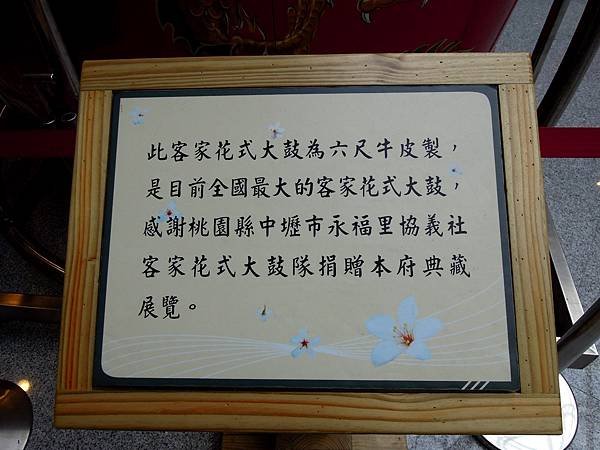 此客家花式大鼓為六尺牛皮製，
是目前全國最大的客家花式大鼓，
感謝桃園縣中壢市永福里協義社
客家花式大鼓隊捐贈本府典藏
展覽。